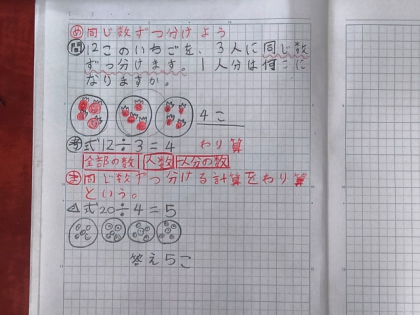 め 同じ数ずつ分けよう
問 12このいちごを、3人に同じ数
ずつ分けます。1人分は何こに
なりますか。
4こ
考 式12÷3=4 わり算
全部の数 人数 一人分の数
ま 同じ数ずつ分ける計算をわり算
という。
式20÷4=5
答え5こ